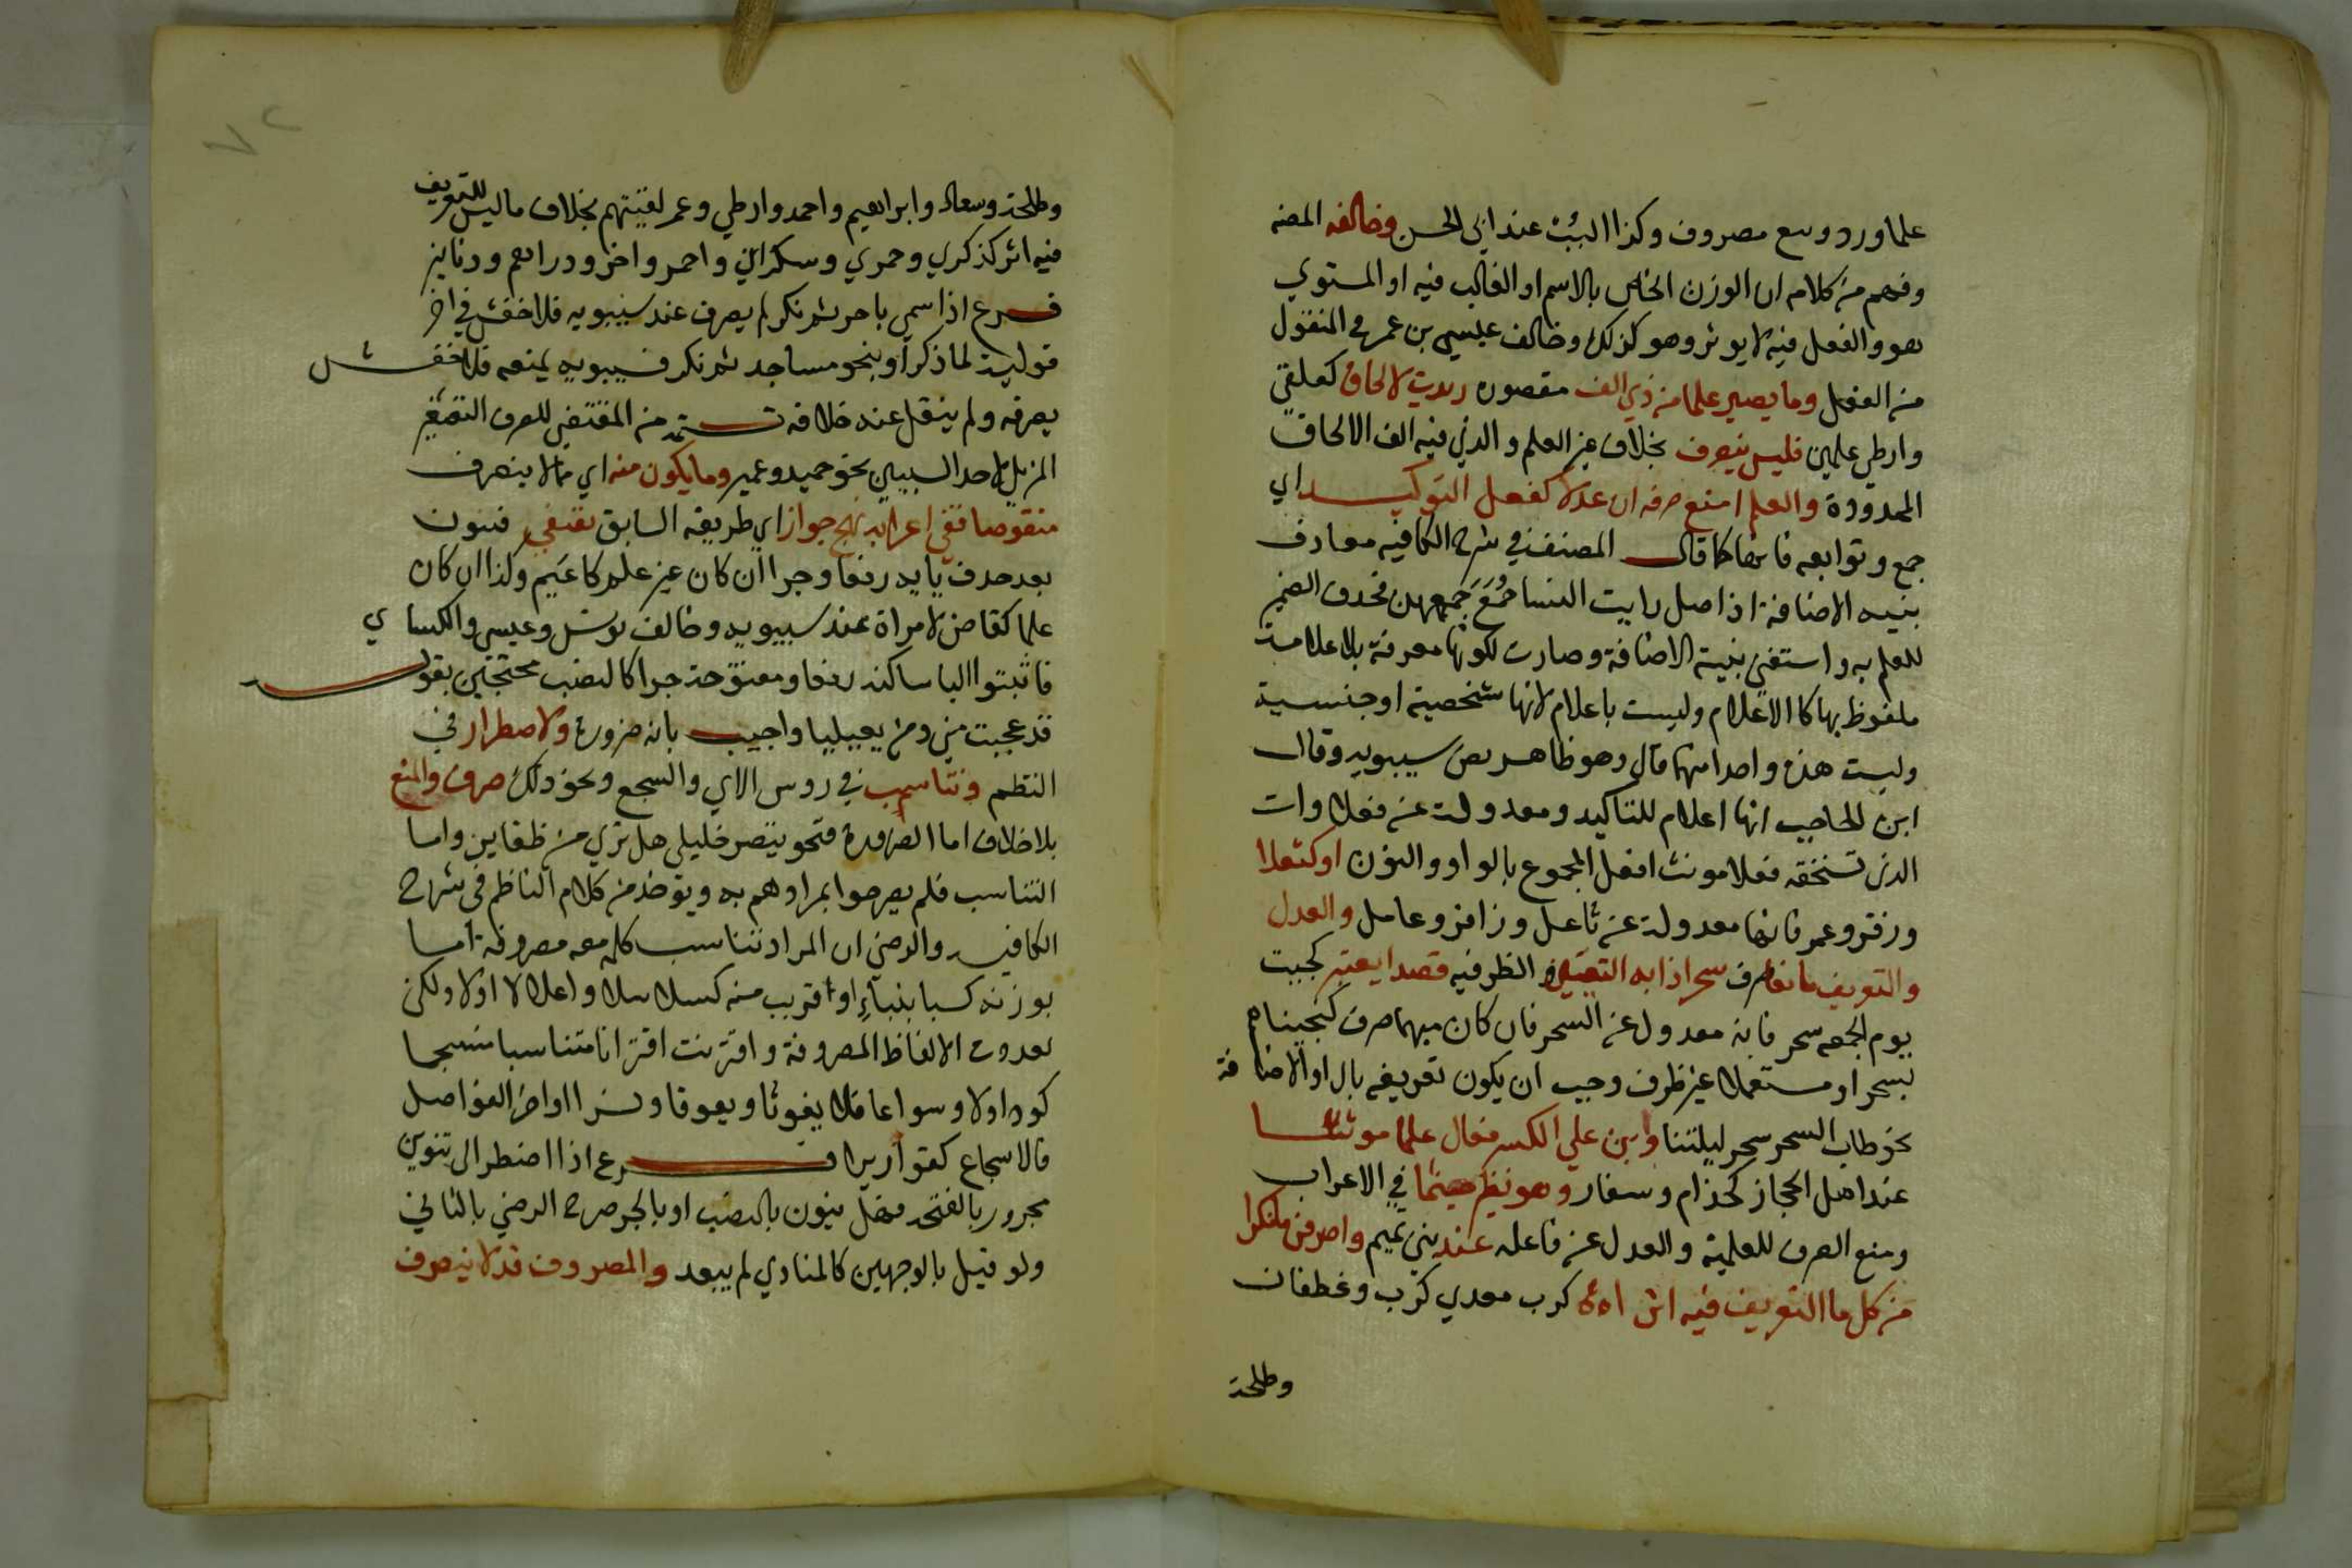 علما ورد وبيع مصروف وكذا البيت عند ابي الحسن وخالفه المصنف
وفهم من كلامه ان الوزن الخاص بالاسم او الغالب فيه او المستوي
هو والفعل فيه لا يوثر وهو كذلك وخالف عيسي بن عمر في المنقول
من الفعل وما يصير علما من ذي الف مقصوره زيدت لالحاق كعلقي
وارطي علمين فليس ينصرف بخلاف غير العلم والذي فيه الف الالحاق
الممدودة والعلم امنع صرفه ان عدلا كفعل التوكيد اي
جمع وتوابعه فانها كما قال المصنف في شرح الكافيه معارف
بنيه الاضافة اذ اصل رايت النسا جُمَعَ جَمعهن فحذف الضمير
للعلم به واستغني بنية الاضافة وصارت لكونها معرفة بلا علامة
ملفوظ بها كالاعلام وليست باعلام لانها شخصية او جنسية
وليست هذه واحدا منهما قال وهو ظاهر نص سيبويه وقال
ابن الحاجب انها اعلام للتاكيد ومعدولة عن فعلاوات
الذي تستحقه فعلا مونث افعل المجموع بالواو والنون او كثعلا
وزفر وعمر فانها معدولة عن ثاعل وزافر وعامر والعدل
والتعريف مانعا صرف سحر اذا به التعيين والظرفيه قصدا يعتبر كجيت
يوم الجمعه سحر فانه معدول عن السحر فان كان مبهما صرف كنجيناهم
بسحر او مستعملا غير ظرف وجب ان يكون تعريفه بال او الاضافة
نحو طاب السحر سحر ليلتنا وابن علي الكسر فعال علما مونثا
عند اهل الحجاز كحذام وسفار وهو نظير جشما في الاعراب
ومنع الصرف للعلمية والعدل عن فاعله عند بني تميم واصرفن ما نكرا
من كل ما التعريف فيه اثرا كرب معدي كرب وغطفان
وطلحة
وطلحة وسعاد وابراهيم واحمد وارطي وعمر لقيتهم بخلاف ما ليس للتعريف
فيه اثر كذكري وحمري وسكران واحمر واخر ودراهم ودنانير
فرع اذا سمي باحمر ثم نكر لم يصرف عند سيبويه فلاخفش في اخر
قوليه لما ذكر او بنحو مساجد ثم نكر فسيبويه يمنعه فلاخفش
يصرفه ولم ينقل عنه خلافه تتمة من المقتضي للصرف التصغير
المزيل لاحد السببين نحو حميد وعمير وما يكون منه اي مما لا ينصرف
منقوصا ففي اعرابه نهج جوار اي طريقه السابق يقتفي فينون
بعد حذف يايه رفعا وجرا ان كان غير علم كاعيم وكذا ان كان
علما كقاض لامراة عند سيبويه وخالف يونس وعيسي والكساي
فاثبتوا اليا ساكنه رفعا ومفتوحة جرا كالنصب محتجين بقوله
قد عجبت مني ومن يعيليا واجيب بانه ضروره ولاضطرار في
النظم وتناسب في روس الاي والسجع ونحو ذلك صرف والمنع
بلا خلاف اما الضرورة فنحو تبصر خليلي هل تري من ظعاين واما
التناسب فلم يصرحوا بمرادهم به ويوخذ من كلام الناظم في شرح
الكافيه والرضي ان المراد تناسب كلمه معه مصروفة اما
بوزنه كسبا بنباءٍ او قريب منه كسلاسلا واغلالا اولا ولكن
بعدوت الالفاظ المصروفة واقترنت اقترانا متناسبا منسجما
كودا ولا سواعا ولا يغوثا ويعوقا ونسرا او اخر الفواصل
فالاسجاع كقواريرا فرع اذا اضطر الي تنوين
مجرور بالفتحه فهل ينون بالنصب او بالجر صرح الرضي بالثاني
ولو قيل بالوجهين كالمنادي لم يبعد والمصروف قد لا ينصرف